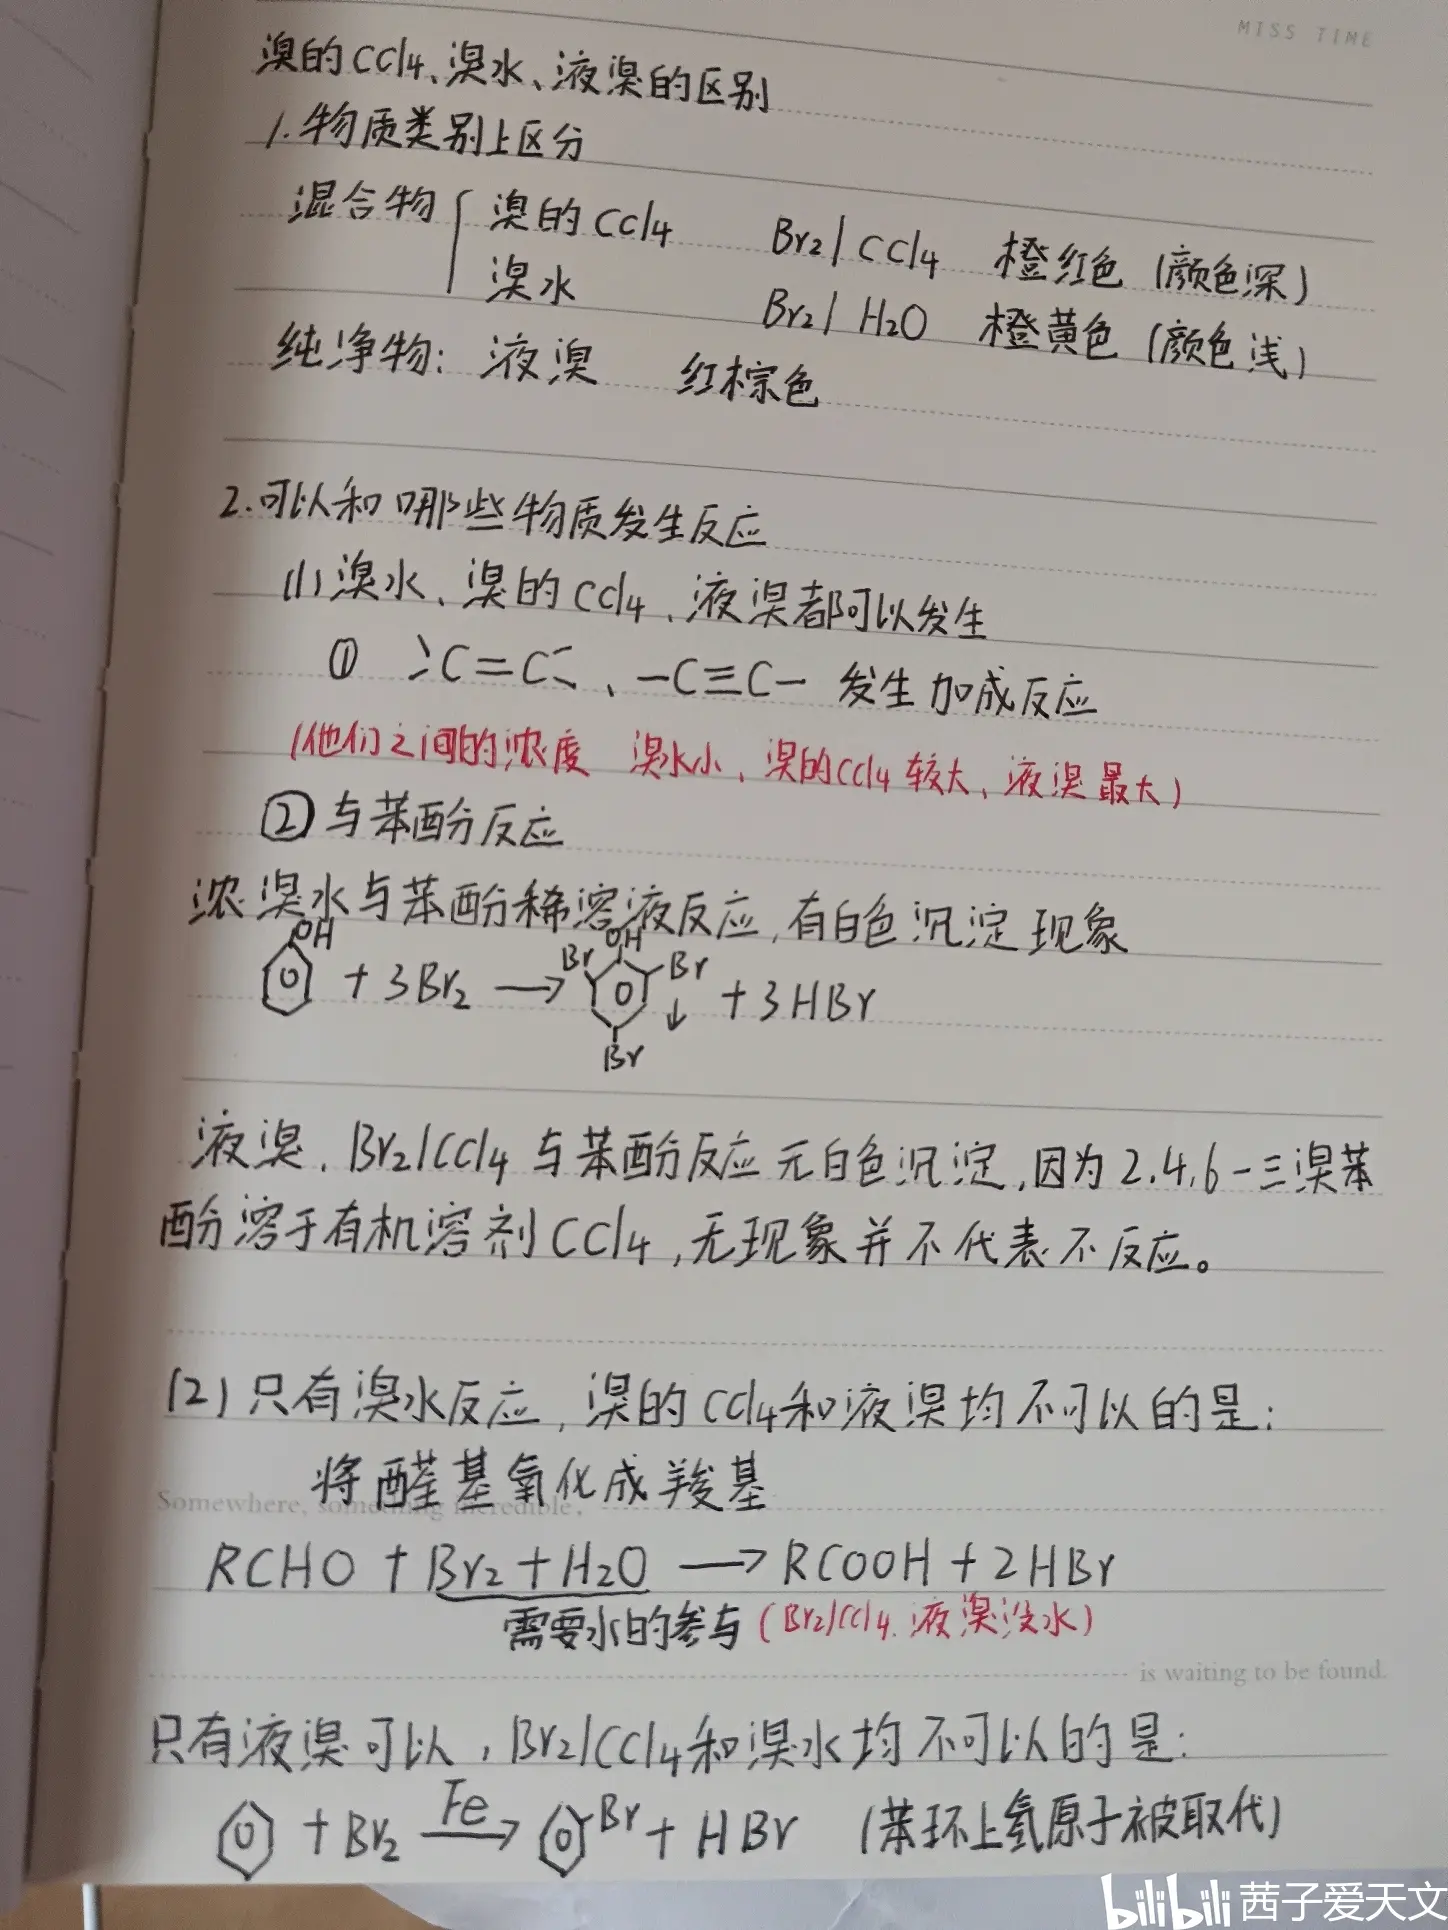 MISS TIME
溴的CCl₄、溴水、液溴的区别
1.物质类别上区分
混合物 { 溴的CCl₄ Br₂/CCl₄ 橙红色 (颜色深)
溴水 Br₂/H₂O 橙黄色 (颜色浅)
纯净物: 液溴 红棕色
2.可以和哪些物质发生反应
(1)溴水、溴的CCl₄、液溴都可以发生
① >C=C<、-C≡C- 发生加成反应
(他们之间的浓度 溴水小、溴的CCl₄较大、液溴最大)
②与苯酚反应
浓溴水与苯酚稀溶液反应,有白色沉淀现象
OH + 3Br₂ → OH Br Br Br ↓ + 3HBr
液溴、Br₂/CCl₄与苯酚反应无白色沉淀,因为2.4.6-三溴苯
酚溶于有机溶剂CCl₄,无现象并不代表不反应。
(2)只有溴水反应,溴的CCl₄和液溴均不可以的是:
将醛基氧化成羧基
Somewhere, something incredible,
RCHO + Br₂ + H₂O → RCOOH + 2HBr
需要水的参与(Br₂/CCl₄.液溴没水)
is waiting to be found.
只有液溴可以,Br₂/CCl₄和溴水均不可以的是:
+ Br₂ Fe → Br + HBr (苯环上氢原子被取代)
bilibili 茜子爱天文